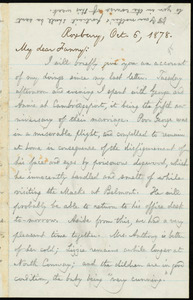 Roxbury, Oct. 6, 1878.
My dear Fanny:
I will briefly give you an account
of my doings since my last letter. Tuesday
afternoon and evening I spent with George and
Annie at Cambridgeport, it being the fifth anni-
versary of their marriage. Poor George was
in a miserable plight, and compelled to remain
at home in consequence of the disfigurement of
his face and eyes by poisonous dogwood, which
he innocently handled and smelt of while
visiting the Marks at Belmont. He will
probably be able to return to his office desk
to-morrow. Aside from this, we had a very
pleasant time together. Mrs. Anthony is better
of her cold; Lizzie remains awhile longer at
North Conway; and the children are in good
condition, the baby being "very cunning."